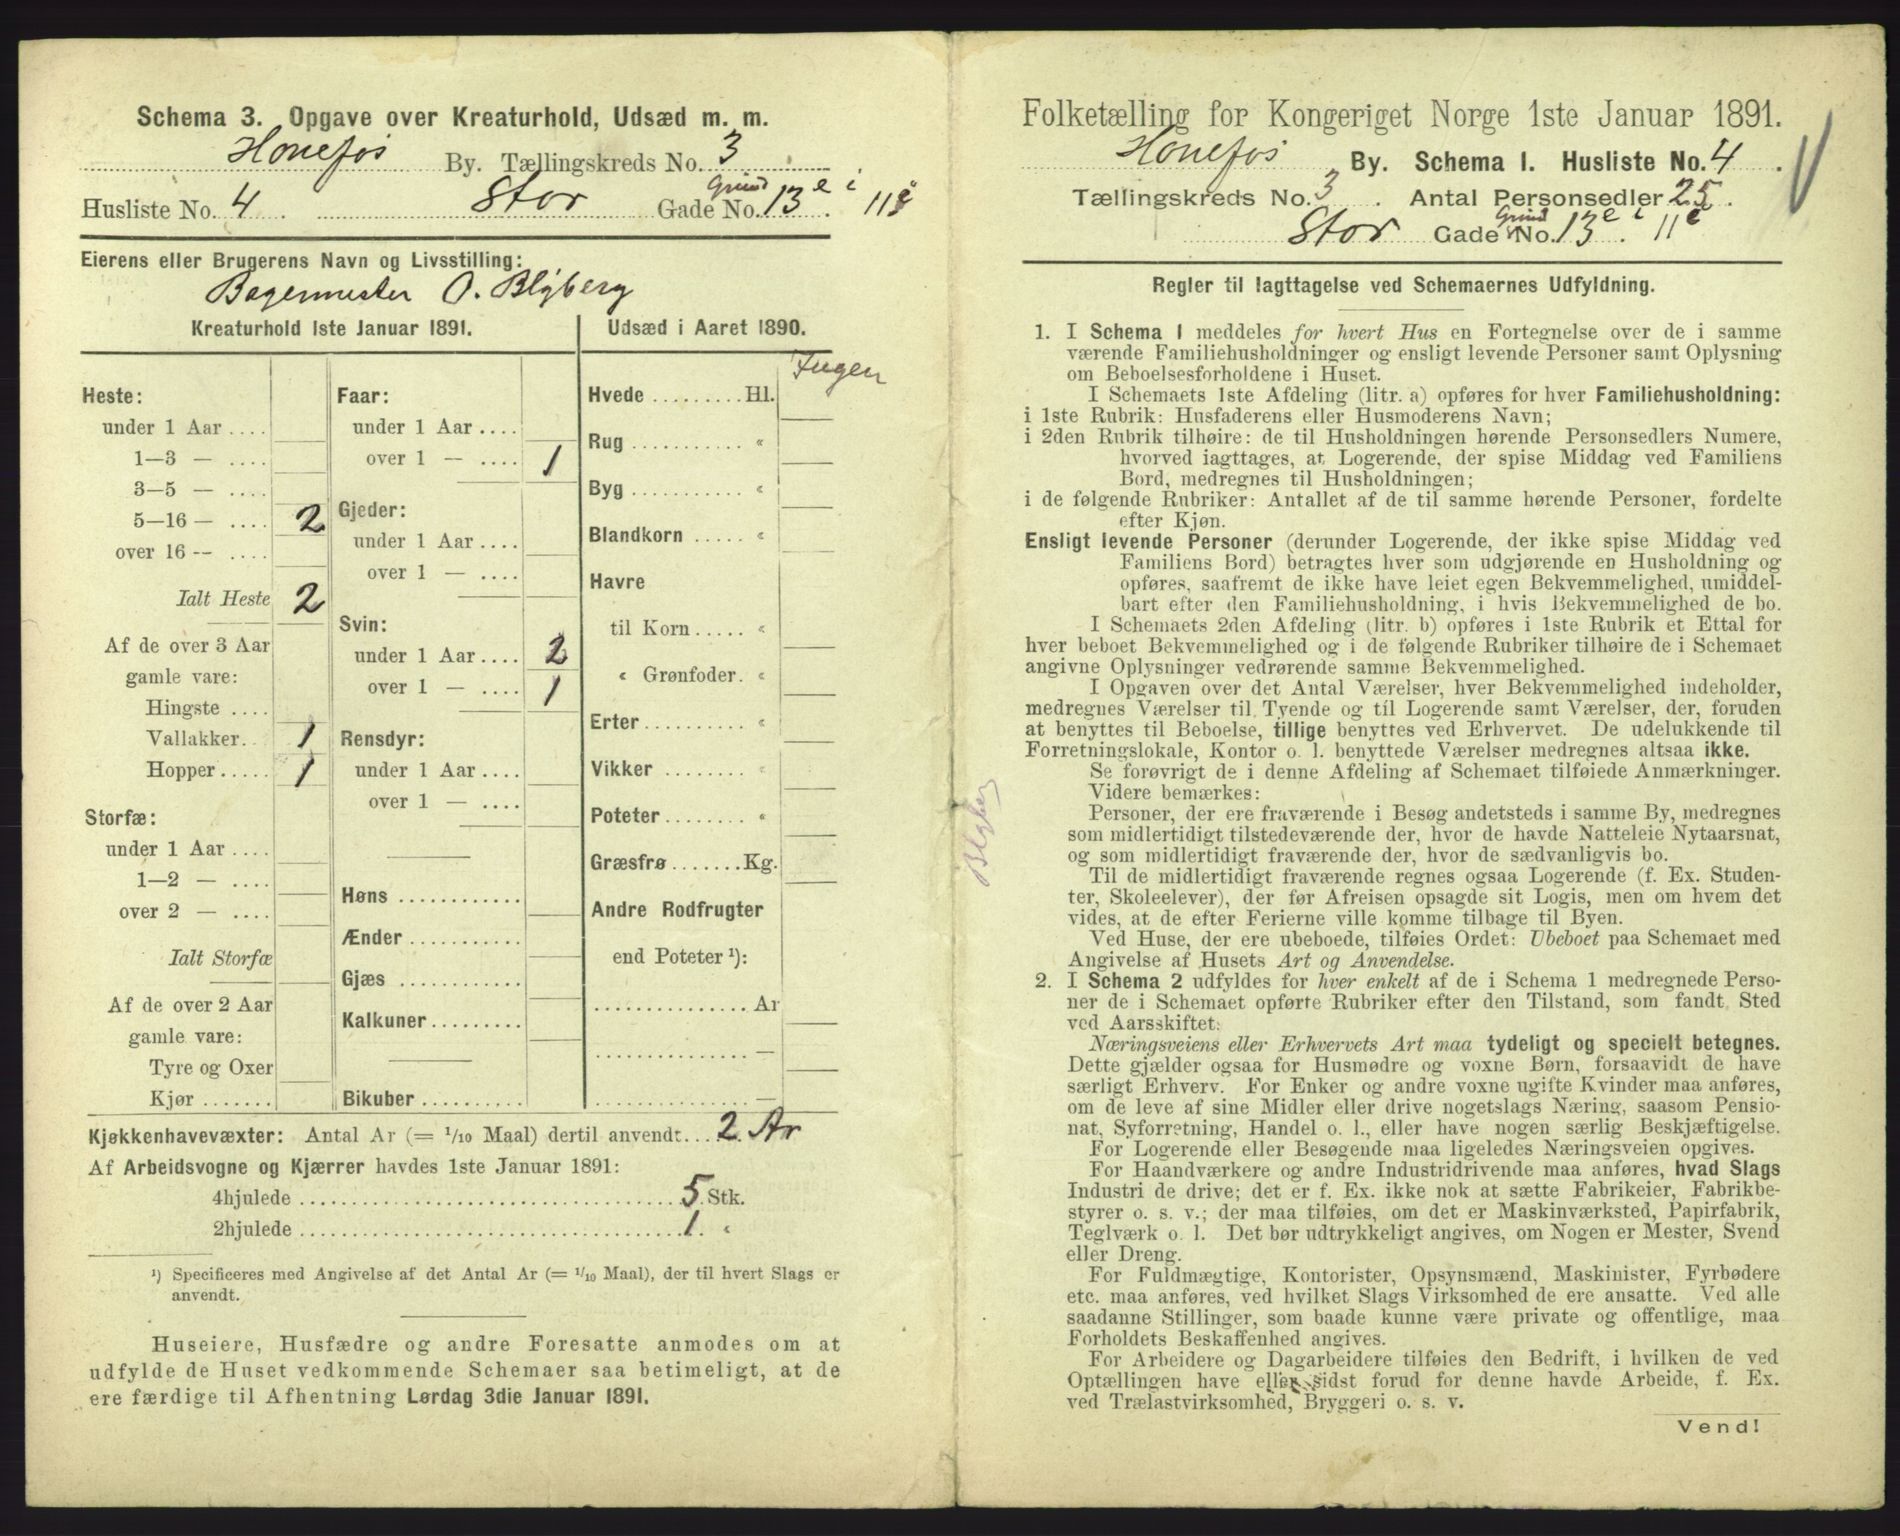 Schema 3. Opgave over Kreaturhold, Udsæd m. m.
Hønefos By. Tællingskreds No. 3
Husliste No. 4. Stor Gade Grund No. 13 e i 11 e
Eierens eller Brugerens Navn og Livsstilling:
Bagermester O. Blyberg
Kreaturhold 1ste Januar 1891.
Heste:
under 1 Aar ....
1—3 — ....
3—5 — ....
5—16 — .... 2
over 16 — ....
Ialt Heste 2
Af de over 3 Aar
gamle vare:
Hingste ....
Vallakker.. 1
Hopper ..... 1
Storfæ:
under 1 Aar ....
1—2 — ....
over 2 — ....
Ialt Storfæ
Af de over 2 Aar
gamle vare:
Tyre og Oxer
Kjør .......
Faar:
under 1 Aar ....
over 1 — .... 1
Gjeder:
under 1 Aar ....
over 1 — ....
Svin:
under 1 Aar .... 2
over 1 — .... 1
Rensdyr:
under 1 Aar ....
over 1 — ....
Høns ............
Ænder ...........
Gjæs ............
Kalkuner .........
Bikuber ..........
Udsæd i Aaret 1890.
Ingen
Hvede ......... Hl.
Rug ........... «
Byg ........... «
Blandkorn ..... «
Havre
til Korn ..... «
« Grønfoder. «
Erter .......... «
Vikker ........ «
Poteter ........ «
Græsfrø ....... Kg.
Andre Rodfrugter
end Poteter ¹):
............... Ar
............... —
............... —
Kjøkkenhavevæxter: Antal Ar (= 1/10 Maal) dertil anvendt.... 2 Ar
Af Arbeidsvogne og Kjærrer havdes 1ste Januar 1891:
4hjulede .................... 5 Stk.
2hjulede .................... 1. «
¹) Specificeres med Angivelse af det Antal Ar (= 1/10 Maal), der til hvert Slags er
anvendt.
Huseiere, Husfædre og andre Foresatte anmodes om at
udfylde de Huset vedkommende Schemaer saa betimeligt, at de
ere færdige til Afhentning Lørdag 3die Januar 1891.
Blyberg
Folketælling for Kongeriget Norge 1ste Januar 1891.
Hønefos By. Schema I. Husliste No. 4.
Tællingskreds No. 3. Antal Personsedler 25.
Stor Gade Grund No. 13 e i 11 e
Regler til Iagttagelse ved Schemaernes Udfyldning.
1. I Schema 1 meddeles for hvert Hus en Fortegnelse over de i samme
værende Familiehusholdninger og ensligt levende Personer samt Oplysning
om Beboelsesforholdene i Huset.
I Schemaets 1ste Afdeling (litr. a) opføres for hver Familiehusholdning:
i 1ste Rubrik: Husfaderens eller Husmoderens Navn;
i 2den Rubrik tilhøire: de til Husholdningen hørende Personsedlers Numere,
hvorved iagttages, at Logerende, der spise Middag ved Familiens
Bord, medregnes til Husholdningen;
i de følgende Rubriker: Antallet af de til samme hørende Personer, fordelte
efter Kjøn.
Ensligt levende Personer (derunder Logerende, der ikke spise Middag ved
Familiens Bord) betragtes hver som udgjørende en Husholdning og
opføres, saafremt de ikke have leiet egen Bekvemmelighed, umiddel-
bart efter den Familiehusholdning, i hvis Bekvemmelighed de bo.
I Schemaets 2den Afdeling (litr. b) opføres i 1ste Rubrik et Ettal for
hver beboet Bekvemmelighed og i de følgende Rubriker tilhøire de i Schemaet
angivne Oplysninger vedrørende samme Bekvemmelighed.
I Opgaven over det Antal Værelser, hver Bekvemmelighed indeholder,
medregnes Værelser til Tyende og til Logerende samt Værelser, der, foruden
at benyttes til Beboelse, tillige benyttes ved Erhvervet. De udelukkende til
Forretningslokale, Kontor o. l. benyttede Værelser medregnes altsaa ikke.
Se forøvrigt de i denne Afdeling af Schemaet tilføiede Anmærkninger.
Videre bemærkes:
Personer, der ere fraværende i Besøg andetsteds i samme By, medregnes
som midlertidigt tilstedeværende der, hvor de havde Natteleie Nytaarsnat,
og som midlertidigt fraværende der, hvor de sædvanligvis bo.
Til de midlertidigt fraværende regnes ogsaa Logerende (f. Ex. Studen-
ter, Skoleelever), der før Afreisen opsagde sit Logis, men om hvem det
vides, at de efter Ferierne ville komme tilbage til Byen.
Ved Huse, der ere ubeboede, tilføies Ordet: Ubeboet paa Schemaet med
Angivelse af Husets Art og Anvendelse.
2. I Schema 2 udfyldes for hver enkelt af de i Schema 1 medregnede Perso-
ner de i Schemaet opførte Rubriker efter den Tilstand, som fandt Sted
ved Aarsskiftet.
Næringsveiens eller Erhvervets Art maa tydeligt og specielt betegnes.
Dette gjælder ogsaa for Husmødre og voxne Børn, forsaavidt de have
særligt Erhverv. For Enker og andre voxne ugifte Kvinder maa anføres,
om de leve af sine Midler eller drive nogetslags Næring, saasom Pensio-
nat, Syforretning, Handel o. l., eller have nogen særlig Beskjæftigelse.
For Logerende eller Besøgende maa ligeledes Næringsveien opgives.
For Haandværkere og andre Industridrivende maa anføres, hvad Slags
Industri de drive; det er f. Ex. ikke nok at sætte Fabrikeier, Fabrikbe-
styrer o. s. v.; der maa tilføies, om det er Maskinværksted, Papirfabrik,
Teglværk o. l. Det bør udtrykkeligt angives, om Nogen er Mester, Svend
eller Dreng.
For Fuldmægtige, Kontorister, Opsynsmænd, Maskinister, Fyrbødere
etc. maa anføres, ved hvilket Slags Virksomhed de ere ansatte. Ved alle
saadanne Stillinger, som baade kunne være private og offentlige, maa
Forholdets Beskaffenhed angives.
For Arbeidere og Dagarbeidere tilføies den Bedrift, i hvilken de ved
Optællingen have eller sidst forud for denne havde Arbeide, f. Ex.
ved Trælastvirksomhed, Bryggeri o. s. v.
Vend!